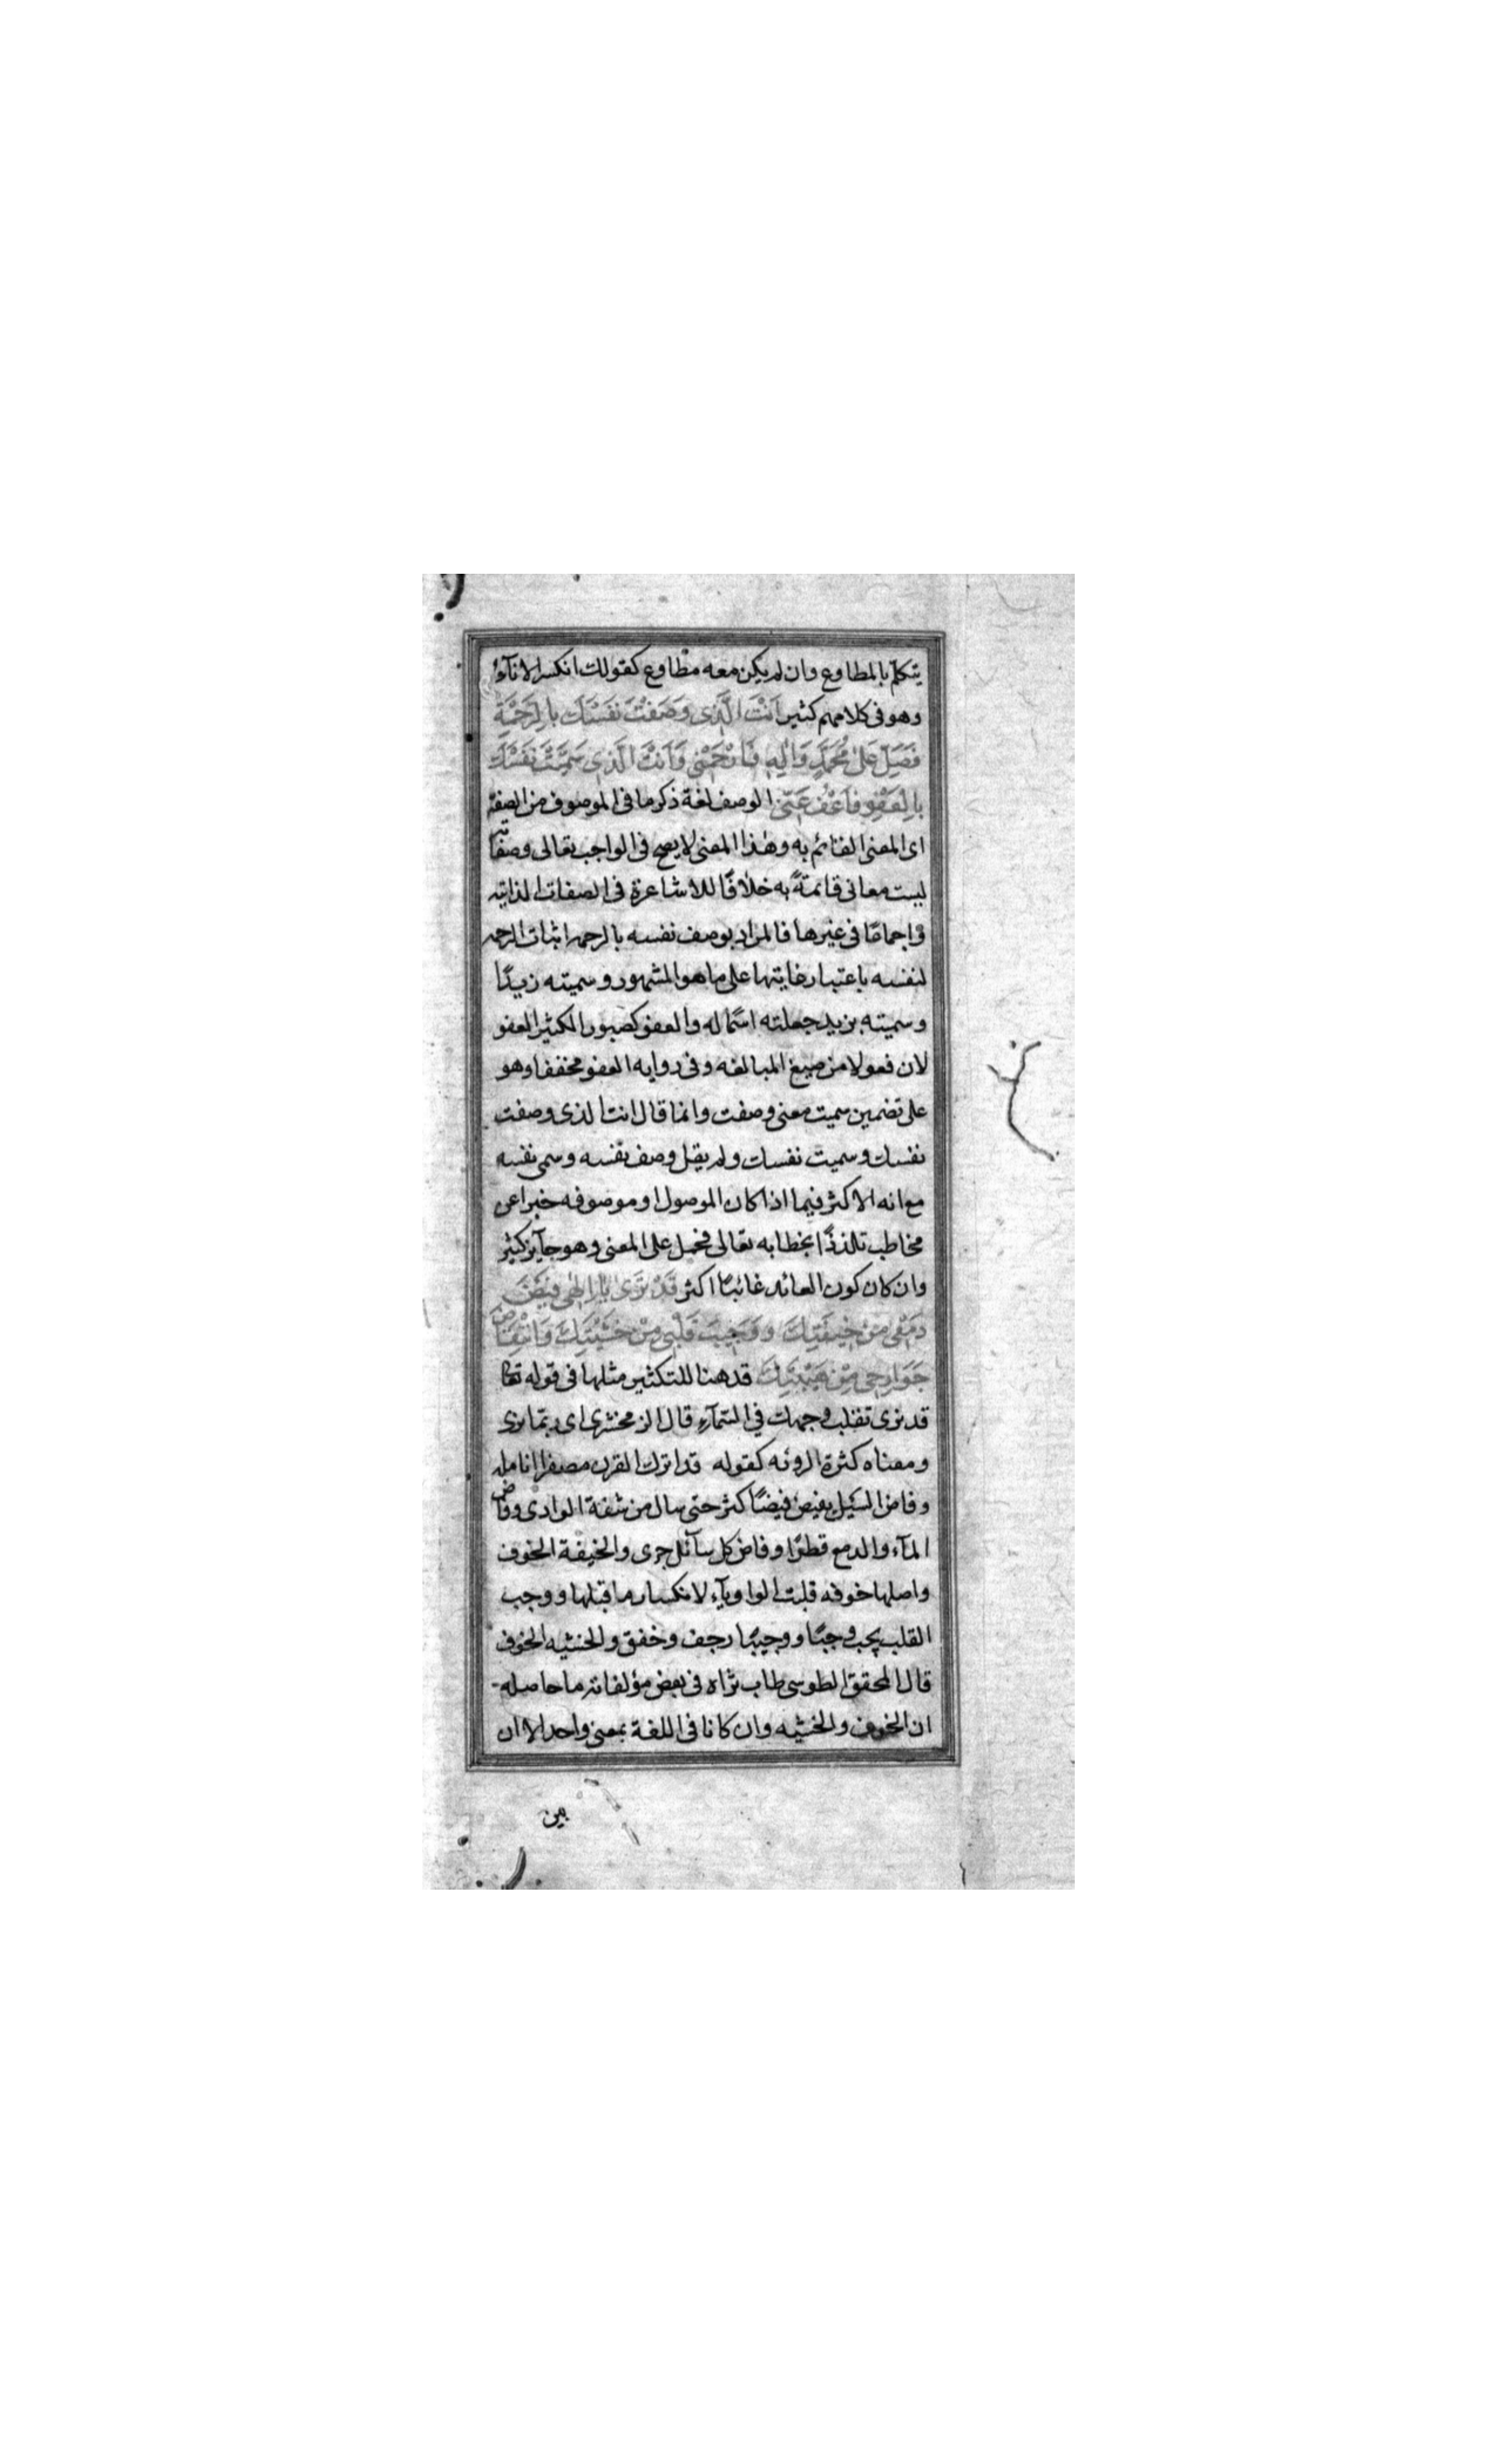 يتكلم بالمطاوع وان لم يكن معه مطاوع كقولك انكسر الاناء
وهو فى كلامهم كثير اَنْتَ الَّذِى وَصَفْتَ نَفْسَكَ بِالرَّحْمَةِ
فَصَلِّ عَلىٰ مُحَمَّدٍ وَاٰلِهِ فَارْحَمْنِى وَاَنْتَ الَّذِى سَمَّيْتَ نَفْسَكَ
بِالْعَفُوِّ فَاعْفُ عَنِّى الوصف لغة ذكر ما فى الموصوف من الصفة
اى المعنى القائم به وهذا المعنى لا يصح فى الواجب تعالى وصفاته
ليست معانى قائمةً به خلافًا للاشاعرة فى الصفات الذاتيه
واجماعًا فى غيرها فالمراد بوصف نفسه بالرحمه اثبات الرحمه
لنفسه باعتبار غايتها على ما هو المشهور وسميته زيدًا
وسميته بزيد جعلته اسمًا له والعفو كصبور الكثير العفو
لان فعولا من صيغ المبالغه وفى روايه العفو مخففا وهو
على تضمين سميت معنى وصفت وانما قال انت الذى وصفت
نفسك وسميت نفسك ولم يقل وصف نفسه وسمى نفسه
مع انه الاكثر فيما اذا كان الموصول او موصوفه خبرا عن
مخاطب تلذذًا بخطابه تعالى فحمل على المعنى وهو جآيز كثير
وان كان كون العائد غائبًا اكثر قَدْ تَرَى يَا اِلٰهِى فَيْضَ
دَمْعِى مِنْ خِيفَتِكَ وَوَجِيبَ قَلْبِى مِنْ خَشْيَتِكَ وَانْتِفَاضَ
جَوَارِحِى مِنْ هَيْبَتِكَ قد هنا للتكثير مثلها فى قوله تعا
قد نرى تقلب وجهك في السّمآءِ قال الزمخشرى اى ربّما نرى
ومعناه كثرة الرؤيه كقوله قد اترك القرن مصفرا انامله
وفاض السّيل يفيض فيضًا كثر حتى سال من شفة الوادى وفاض
المآء والدمع قطرًا وفاض كل سآئل جرى والخيفة الخوف
واصلها خوفه قلبت الواو يآء لانكسار ما قبلها ووجب
القلب يجب وجبًا ووجيبًا رجف وخفق والخشيه الخوف
قال المحقق الطوسى طاب ثراه فى بعض مؤلفاته ما حاصله
ان الخوف والخشيه وان كانا فى اللغة بمعنى واحد الا ان
بين